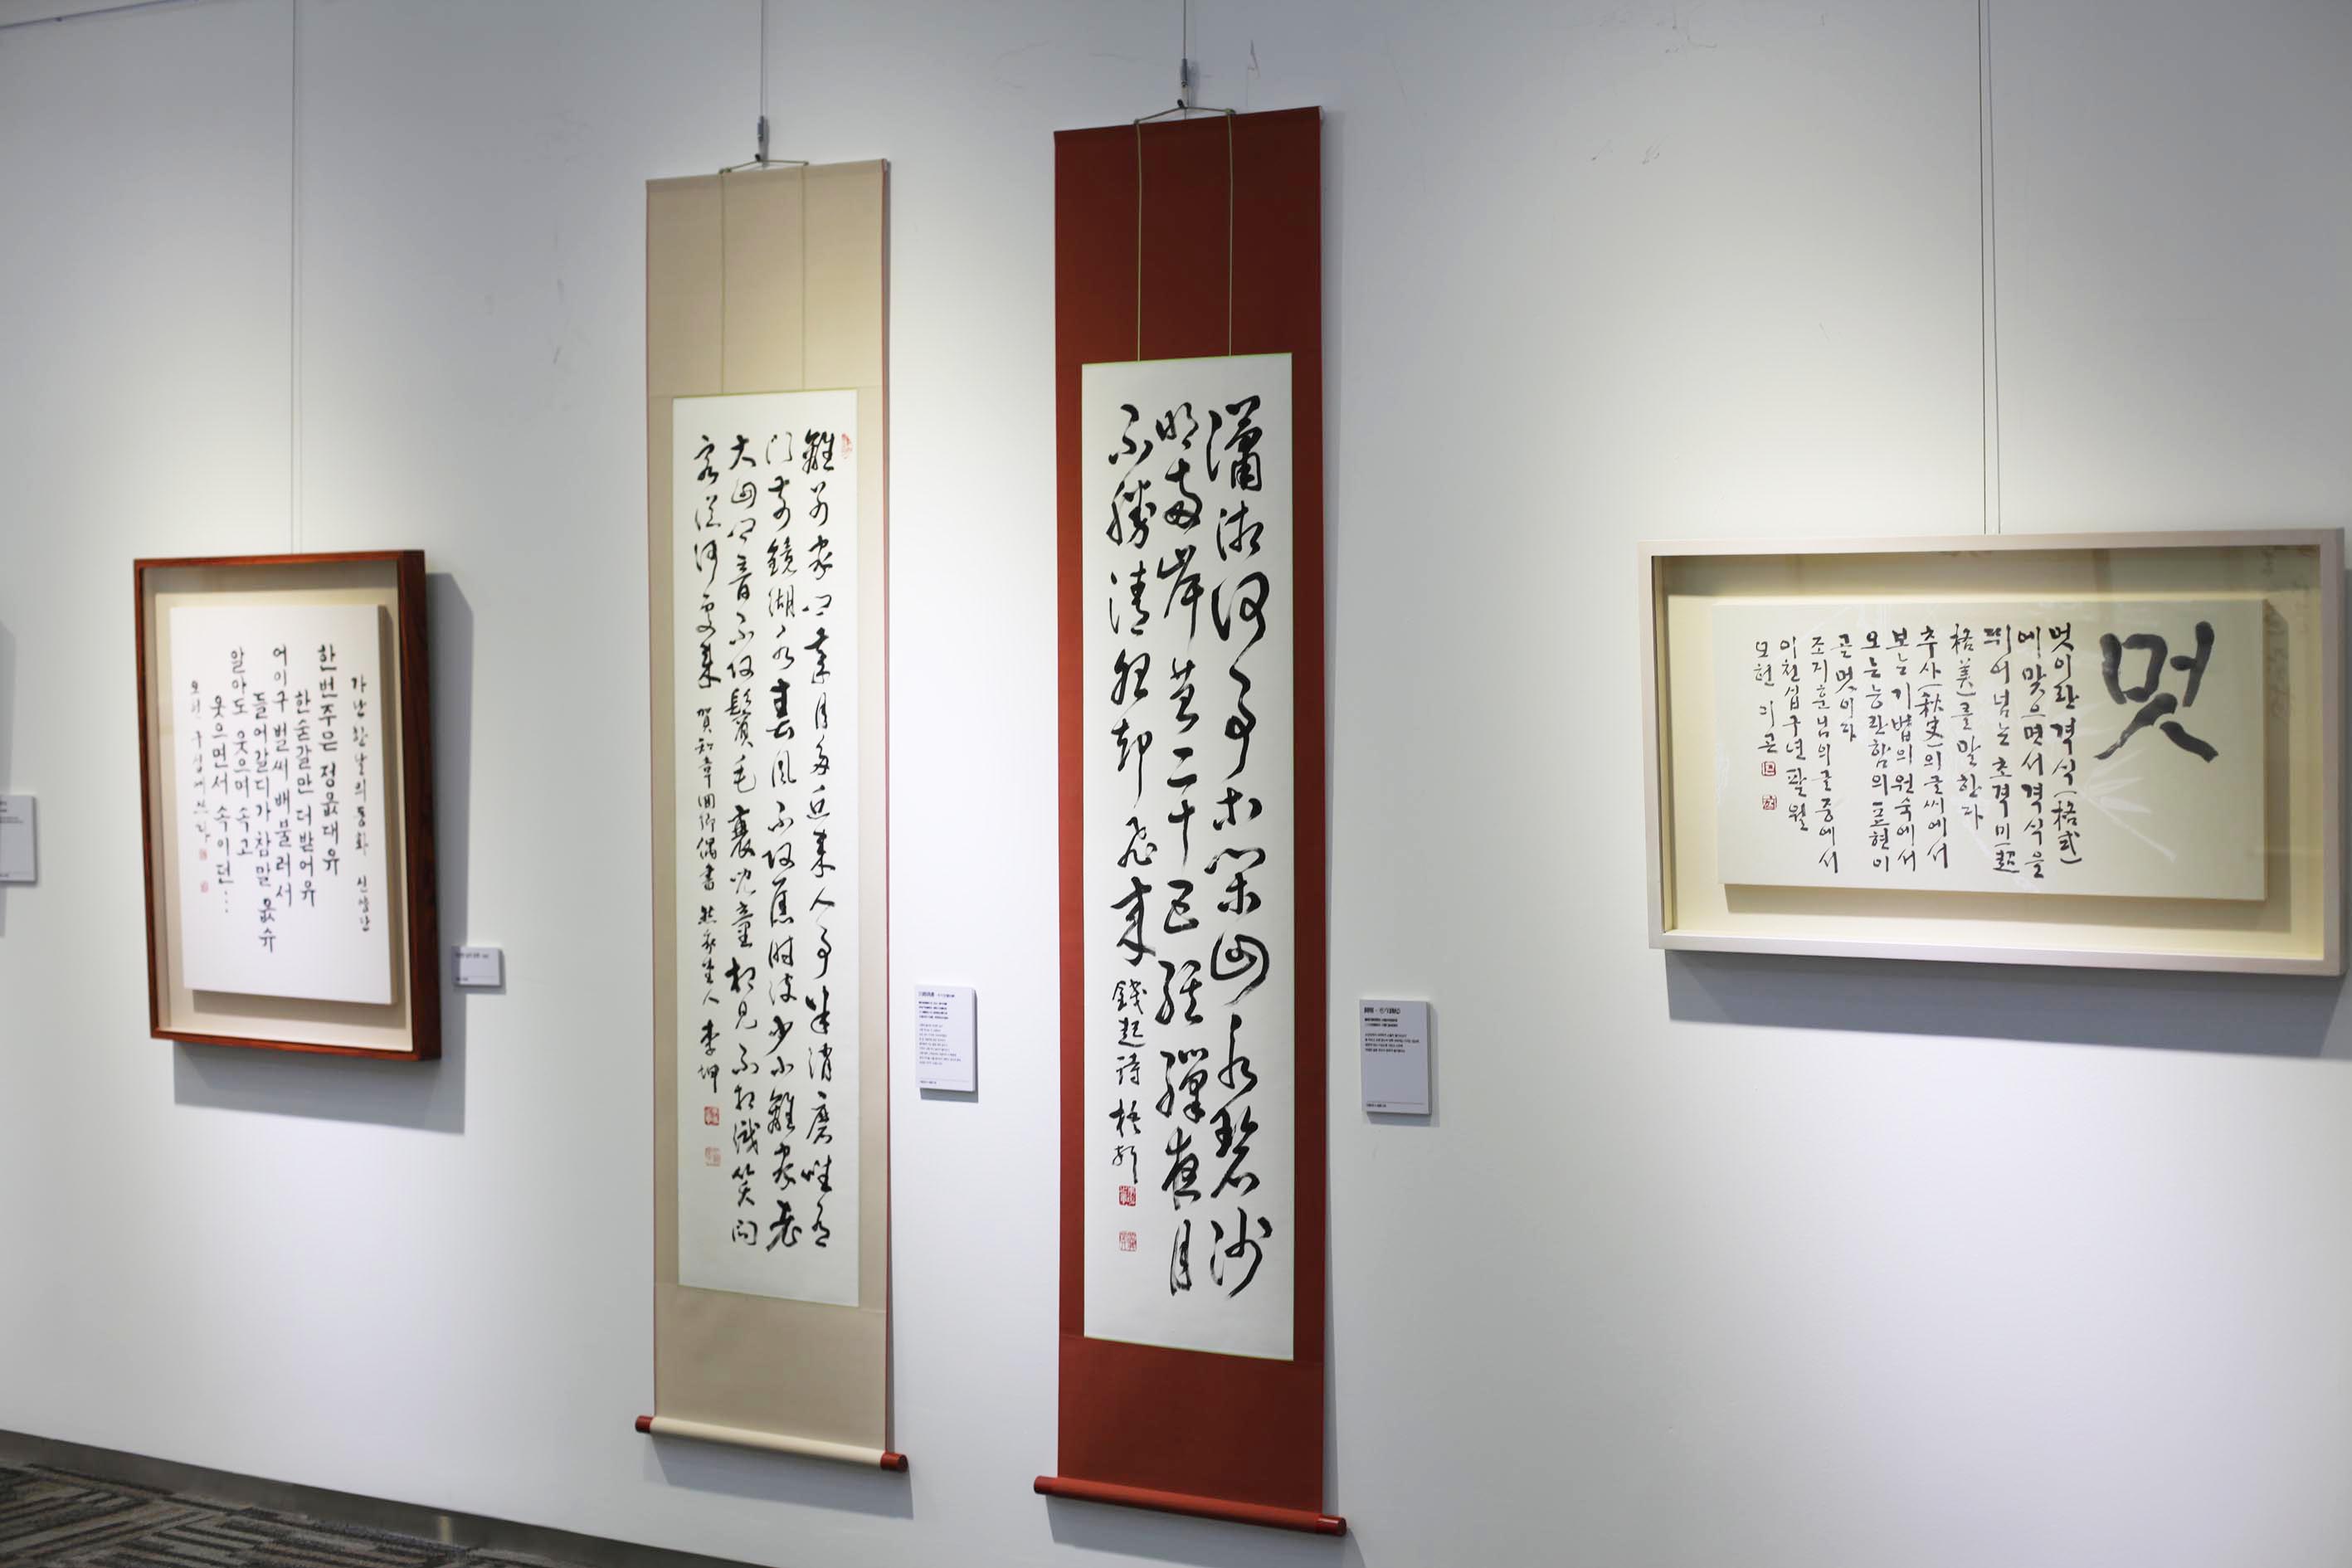 가난한 날의 동화
한번주은 정읎대유
한숟갈만 더 받어유
어이구 벌써 배불러서
들어갈디가 참말 읎슈
알아도 웃으며 속고
웃으면서 속이던...
離別家鄉歲月多近來人事半消磨唯有
門前鏡湖水春風不改舊時波少小離家老
大回鄉音不改鬢毛衰兒童相見不相識笑問
客從何處來 賀知章回鄉偶書 李坤
瀟湘何事等閑回水碧沙
明兩岸苔二十五弦彈夜月
不勝清怨却飛來 錢起詩
멋
멋이란 격식(格式)
에 맞으면서 격식을
뛰어넘는 초격미(超
格美)를 말한다
추사(秋史)의 글씨에서
보는 기법의 원숙에서
오는 능란함의 표현이
곧 멋이다
조지훈님의 글 중에서
이천십구년 팔월